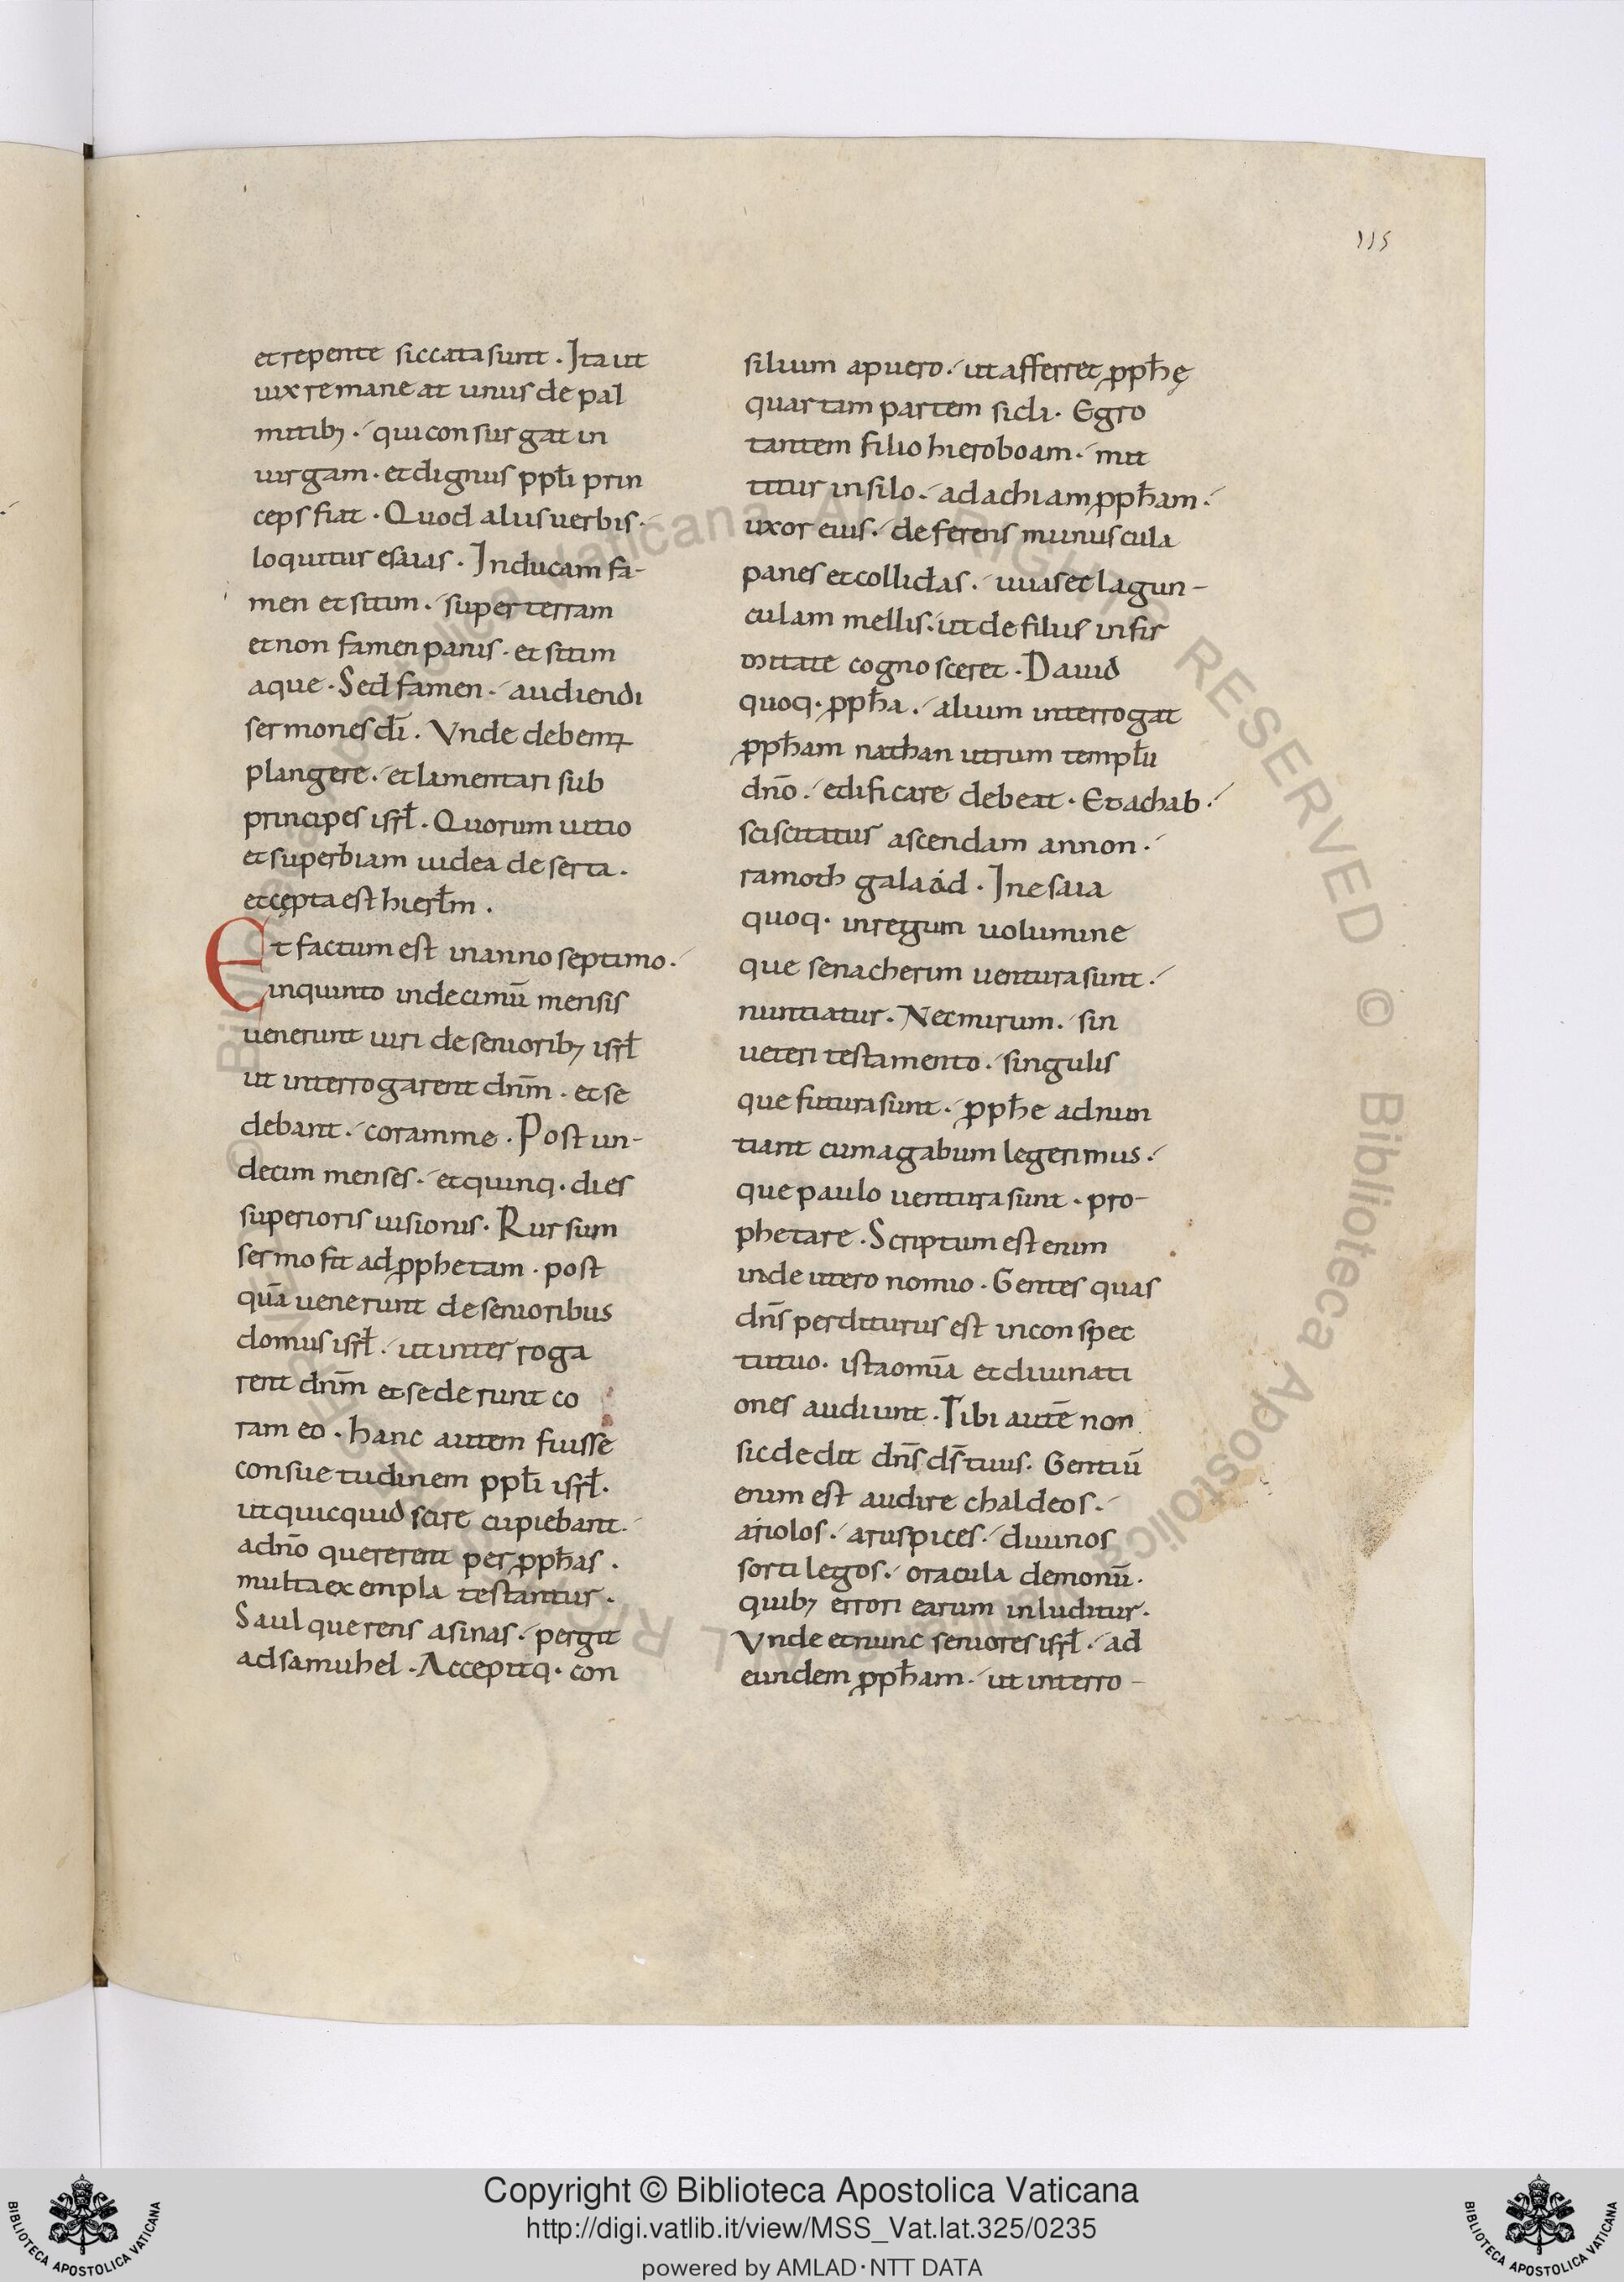 115
et repente siccata sunt . Ita ut
uix remaneat unus de pal
mitib; . qui consurgat in
uirgam . et dignus ppłi prin
ceps fiat . Quod aliis uerbis .
loquitur esaias . Inducam fa-
men et sitim . super terram
et non famen panis . et sitim
aque . Sed famen . audiendi
sermones dī . Vnde debemꝰ
plangere . et lamentari sub
principes isrł . Quorum uitio
et superbiam iudea deserta .
et cępta est hierłm .
Et factum est in anno septimo .
in quinto in decimū mensis
uenerunt uiri de seniorib; isrł
ut interrogarent dnm̄ . et se
debant . coram me . Post un-
decim menses . et quinq . dies
superioris uisionis . Rursum
sermo fit ad ꝓphetam . post
quā uenerunt de senioribus
domus isrł . ut inter roga
rent dnm̄ et sederunt co
ram eo . hanc autem fuisse
consuetudinem ppłi isrł .
ut quicquid scire cupiebant .
a dn̄o quererent per ꝓpħas .
multa exempla testantur .
Saul querens asinas . pergit
ad samuhel . Accepitq . con
silium a puero . ut afferret ꝓpħę
quartam partem sicli . Egro
tantem filio hieroboam . mit
titur in silo . ad achiam ꝓpħam .
uxor eius . deferens munuscula
panes et collidas . uuas et lagun-
culam mellis . ut de filius infir
mitate cognosceret . Dauid
quoq . ꝓpħa . alium interrogat
ꝓpħam nathan utrum templū
dn̄o . edificare debeat . Et achab .
sciscitatus ascendam annon .
ramoth galaád . In esaia
quoq . in regum uolumine
que senacherim uentura sunt .
nuntiatur . Nec mirum . sin
ueteri testamento . singulis
que futura sunt . ꝓpħe adnun
tiant cum agabum legerimus .
que paulo uentura sunt . pro-
phetare . Scriptum est enim
inde utero nomio . Gentes quas
dn̄s perditurus est in conspec
tu tuo . ista omīa et diuinati
ones audiunt . Tibi autē non
sic dedit dn̄s ds̄ tuus . Gentiū
enim est audire chaldeos .
ariolos . aruspices . diuinos
sortilegos . oracula demonū .
quib; errori earum inluditur .
Vnde et nunc seniores isrł . ad
eundem ꝓpħam . ut interro-
Copyright © Biblioteca Apostolica Vaticana
http://digi.vatlib.it/view/MSS_Vat.lat.325/0235
powered by AMLAD·NTT DATA
BIBLIOTECA APOSTOLICA VATICANA
BIBLIOTECA APOSTOLICA VATICANA